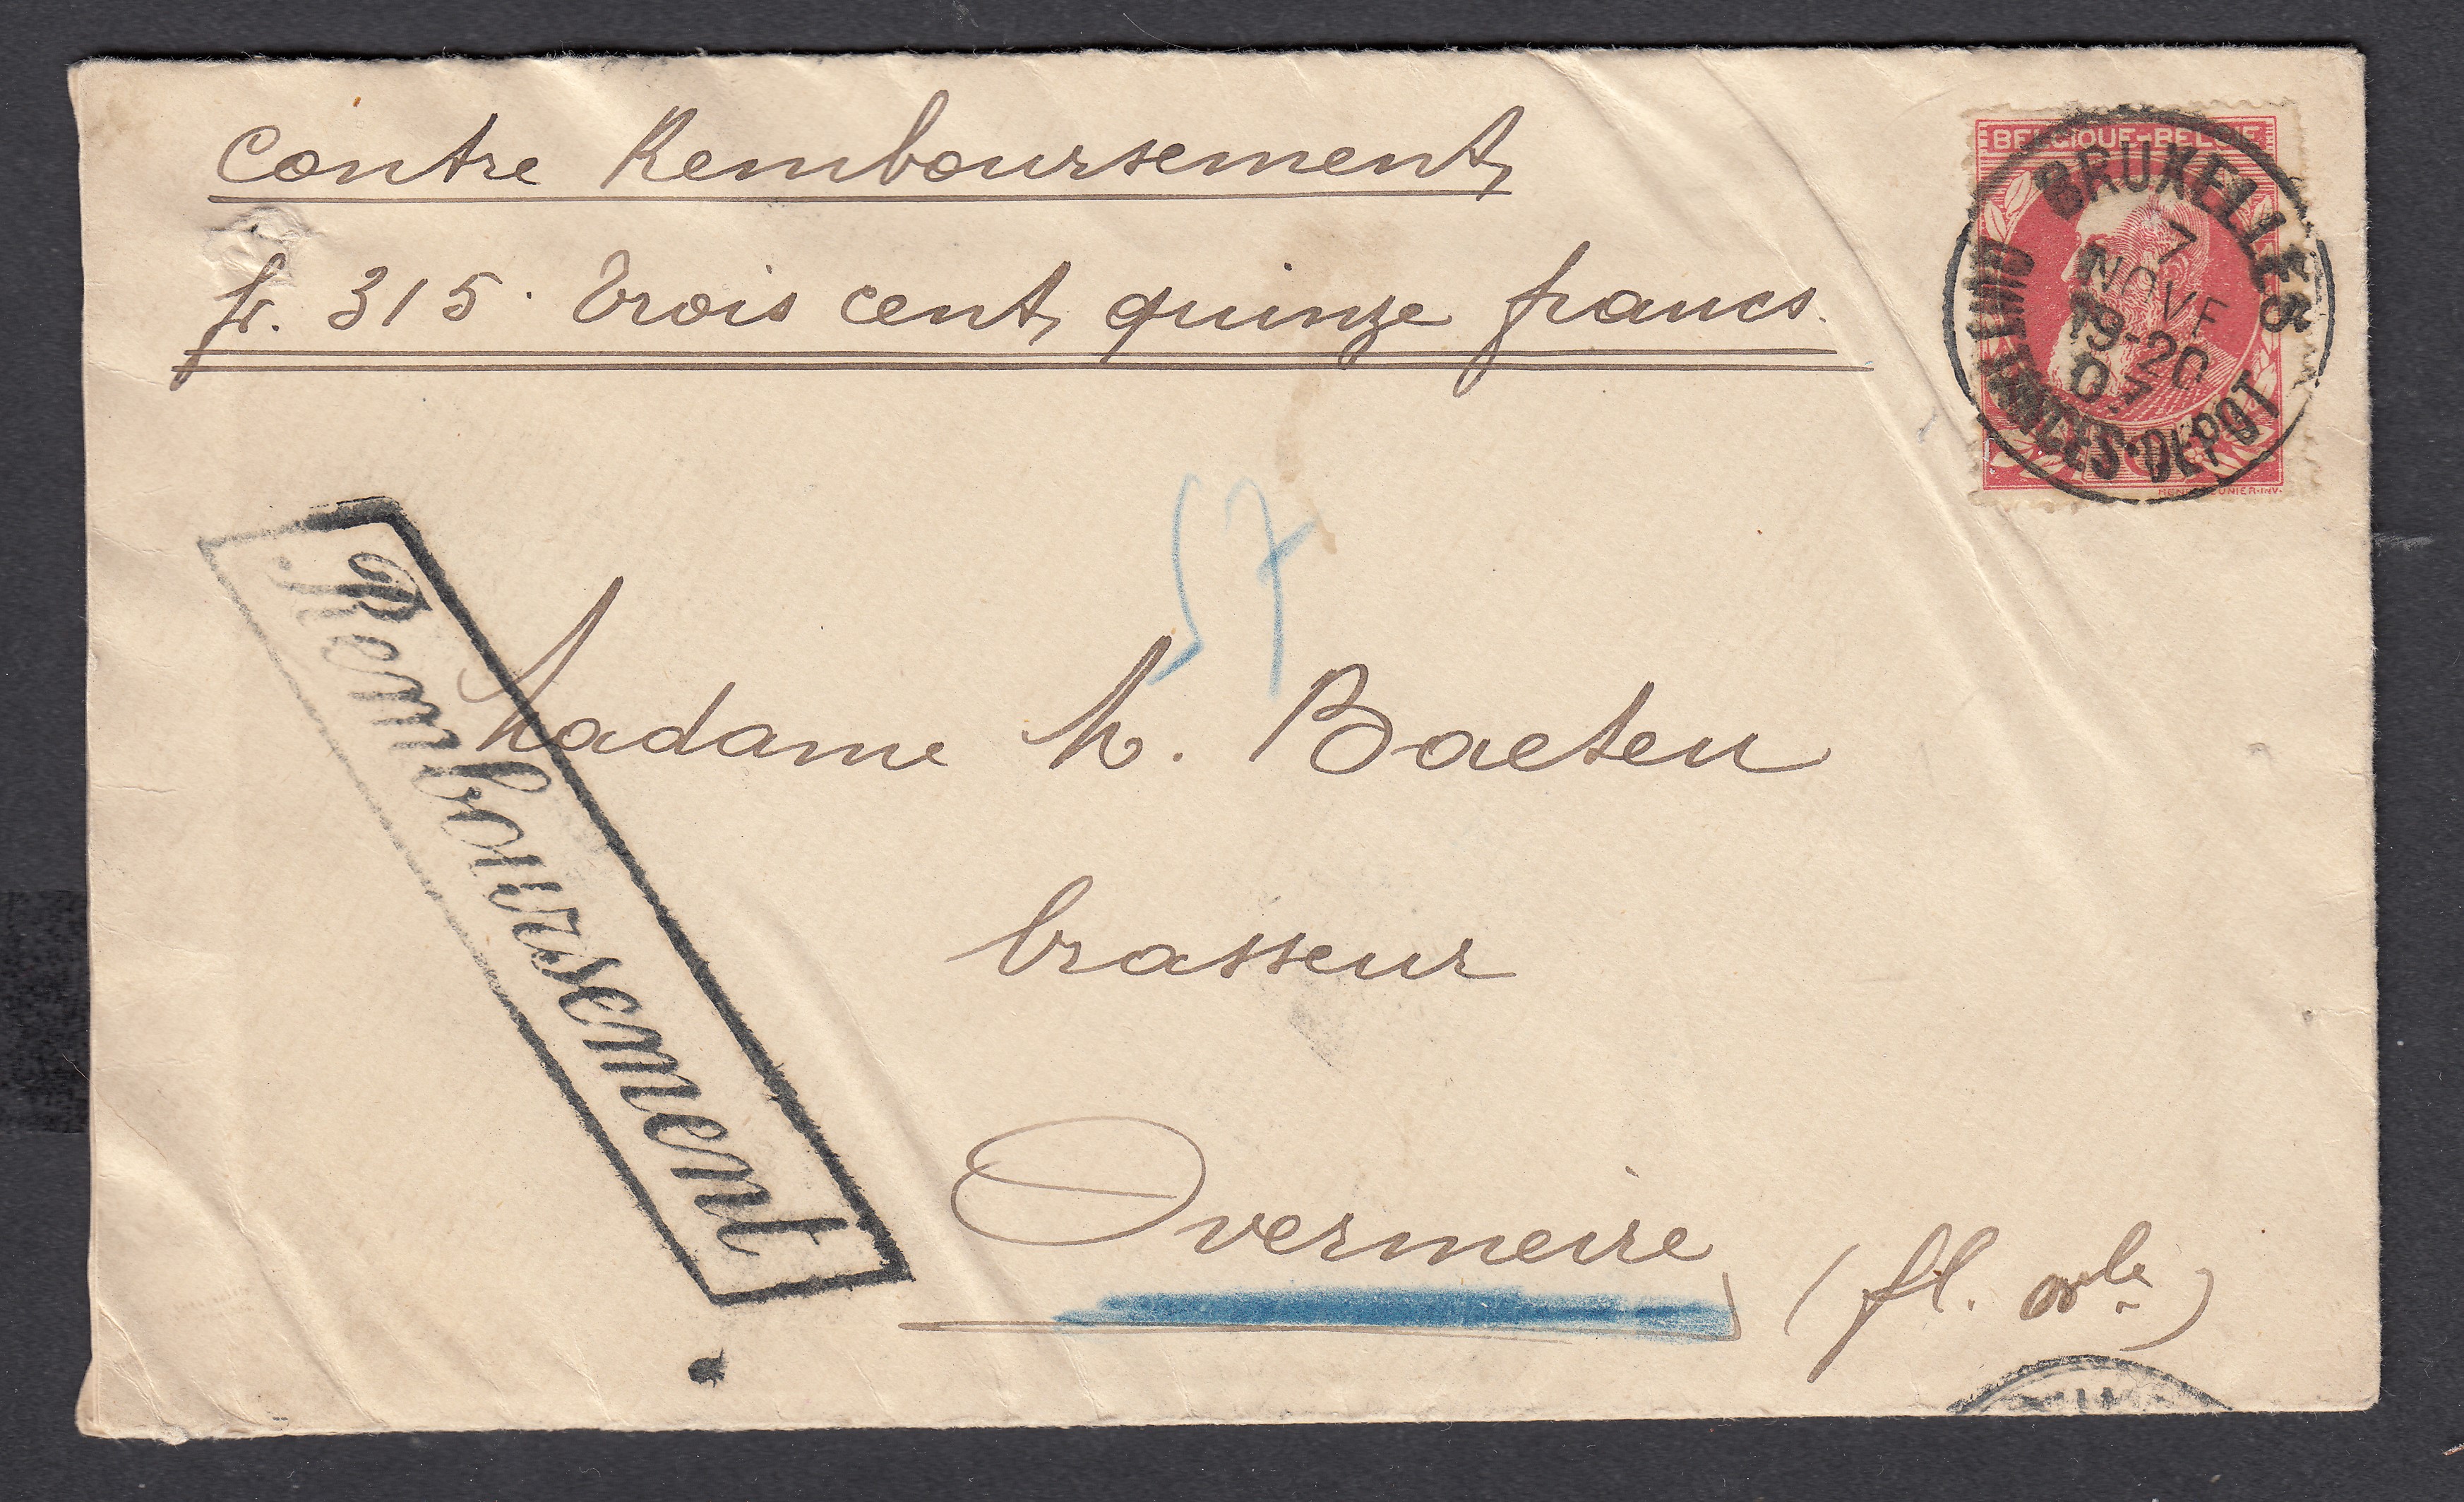 Contre Remboursement
fr. 315. Trois cent quinze francs.
BELGIQUE-BELGIE
BRUXELLES
7
NOVE
19-20
07
DEPOT
57
Remboursement
Madame h. Baeten
brasseur
Overmeire (fl. orle)